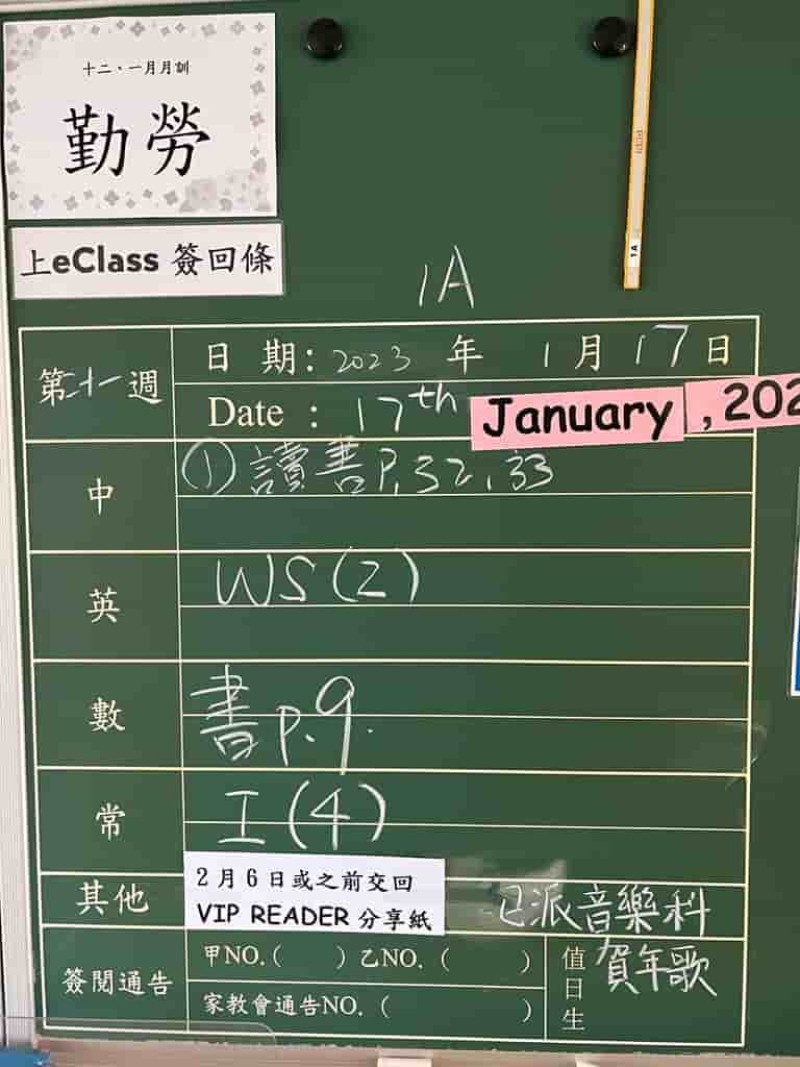 十二・一月月訓
勤勞
上eClass 簽回條
1A
1A
第二十一週
日 期： 2023 年 1 月 17 日
Date ： 17th January ,202
中
① 讀書P.32,33
英
WS(2)
數
書p.9.
常
工(4)
其他
2月6日或之前交回
VIP READER 分享紙
已派音樂科
賀年歌
簽閱通告
甲NO.( ) 乙NO.( )
家教會通告NO.( )
值日生